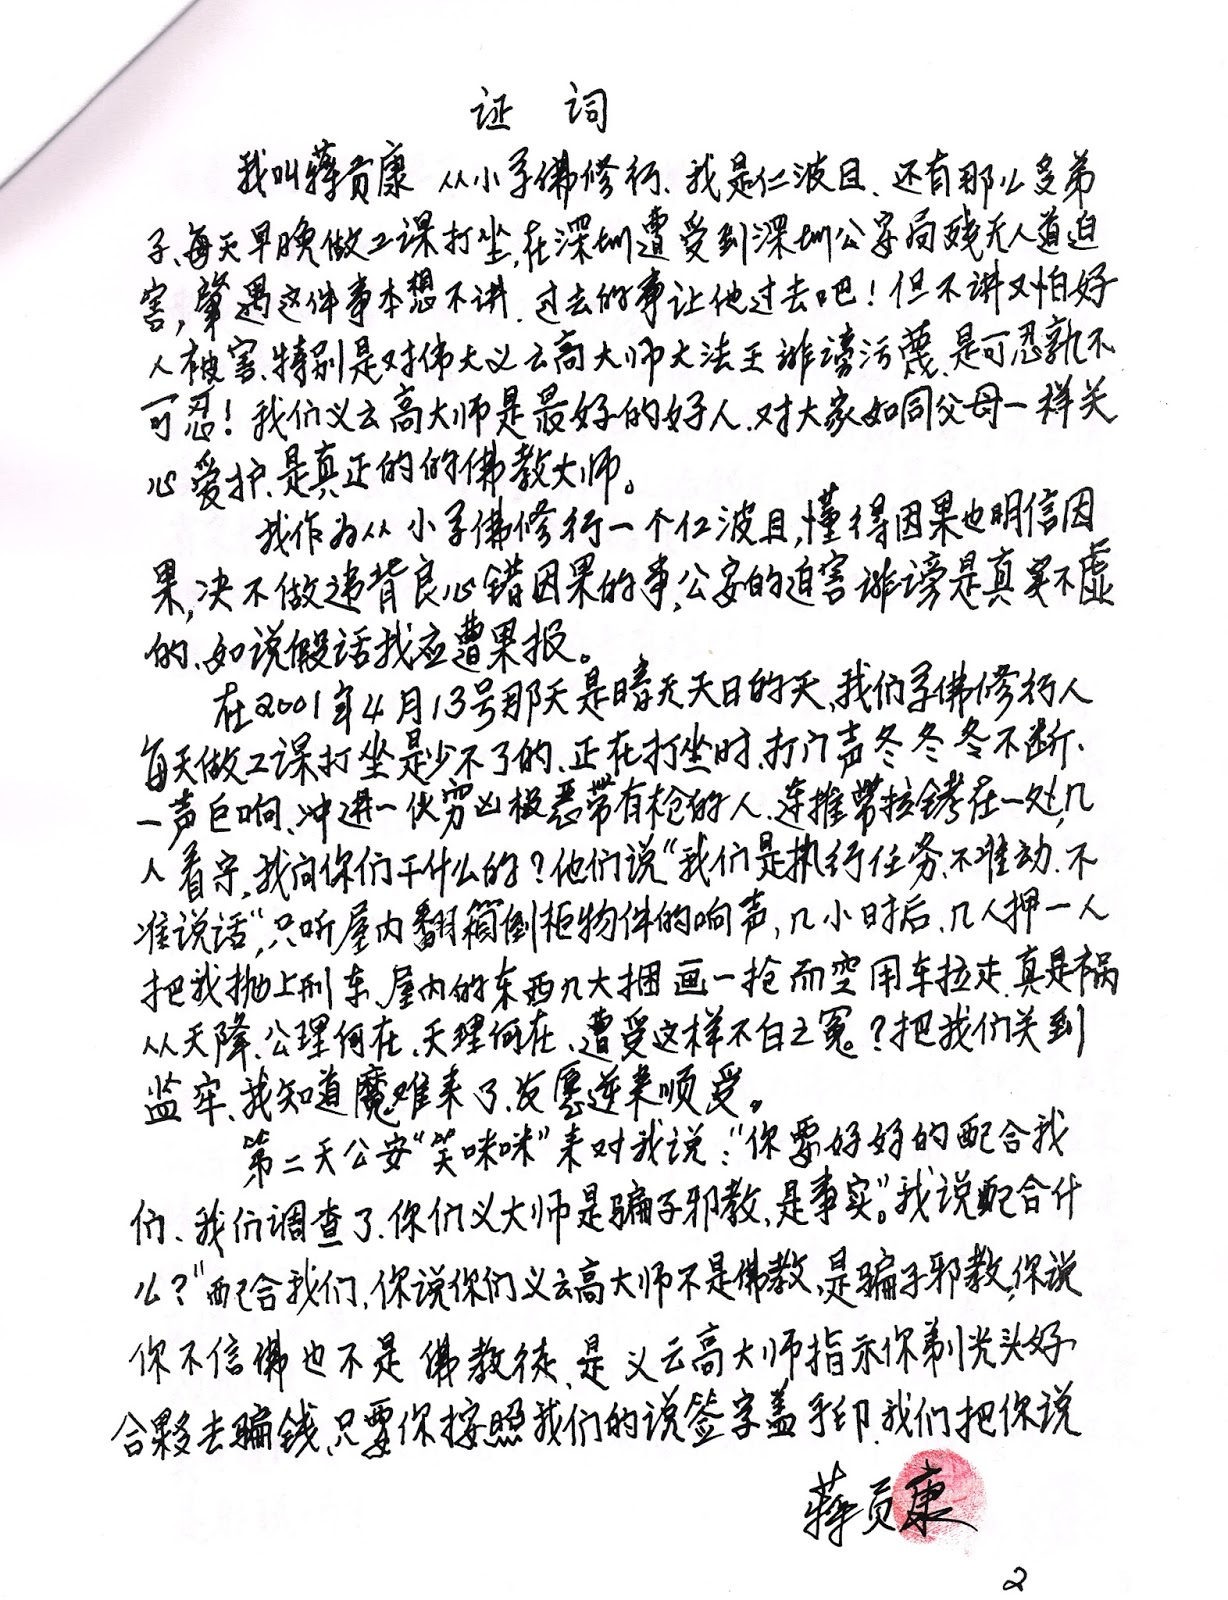 证 词
我叫蒋贡康 从小学佛修行、我是仁波且、还有那么多弟
子、每天早晚做工课打坐,在深圳遭受到深圳公安局残无人道迫
害,肇遇这件事本想不讲、过去的事让他过去吧!但不讲又怕好
人被害、特别是对伟大义云高大师大法王诽谤污蔑、是可忍孰不
可忍!我们义云高大师是最好的好人、对大家如同父母一样关
心爱护、是真正的的佛教大师。
我作为从小学佛修行一个仁波且,懂得因果也明信因
果,决不做违背良心错因果的事,公安的迫害诽谤是真实不虚
的、如说假话我应遭果报。
在2001年4月13号那天是暗无天日的天,我们学佛修行人
每天做工课打坐是少不了的、正在打坐时、打门声冬冬冬不断、
一声巨响、冲进一伙穷凶极恶带有枪的人、连推带拉铐在一处,几
人看守,我问你们干什么的?他们说“我们是执行任务、不准动、不
准说话”,只听屋内翻箱倒柜物件的响声,几小时后、几人押一人
把我抛上刑车、屋内的东西几大捆画一抢而空用车拉走、真是祸
从天降、公理何在、天理何在、遭受这样不白之冤?把我们关到
监牢、我知道魔难来了、发愿逆来顺受。
第二天公安“笑咪咪”来对我说:“你要好好的配合我
们、我们调查了、你们义大师是骗子邪教、是事实”。我说配合什
么?“配合我们、你说你们义云高大师不是佛教、是骗子邪教,你说
你不信佛也不是佛教徒、是义云高大师指示你剃光头好
合夥去骗钱、只要你按照我们的说签字盖手印、我们把你说
蒋贡康
2